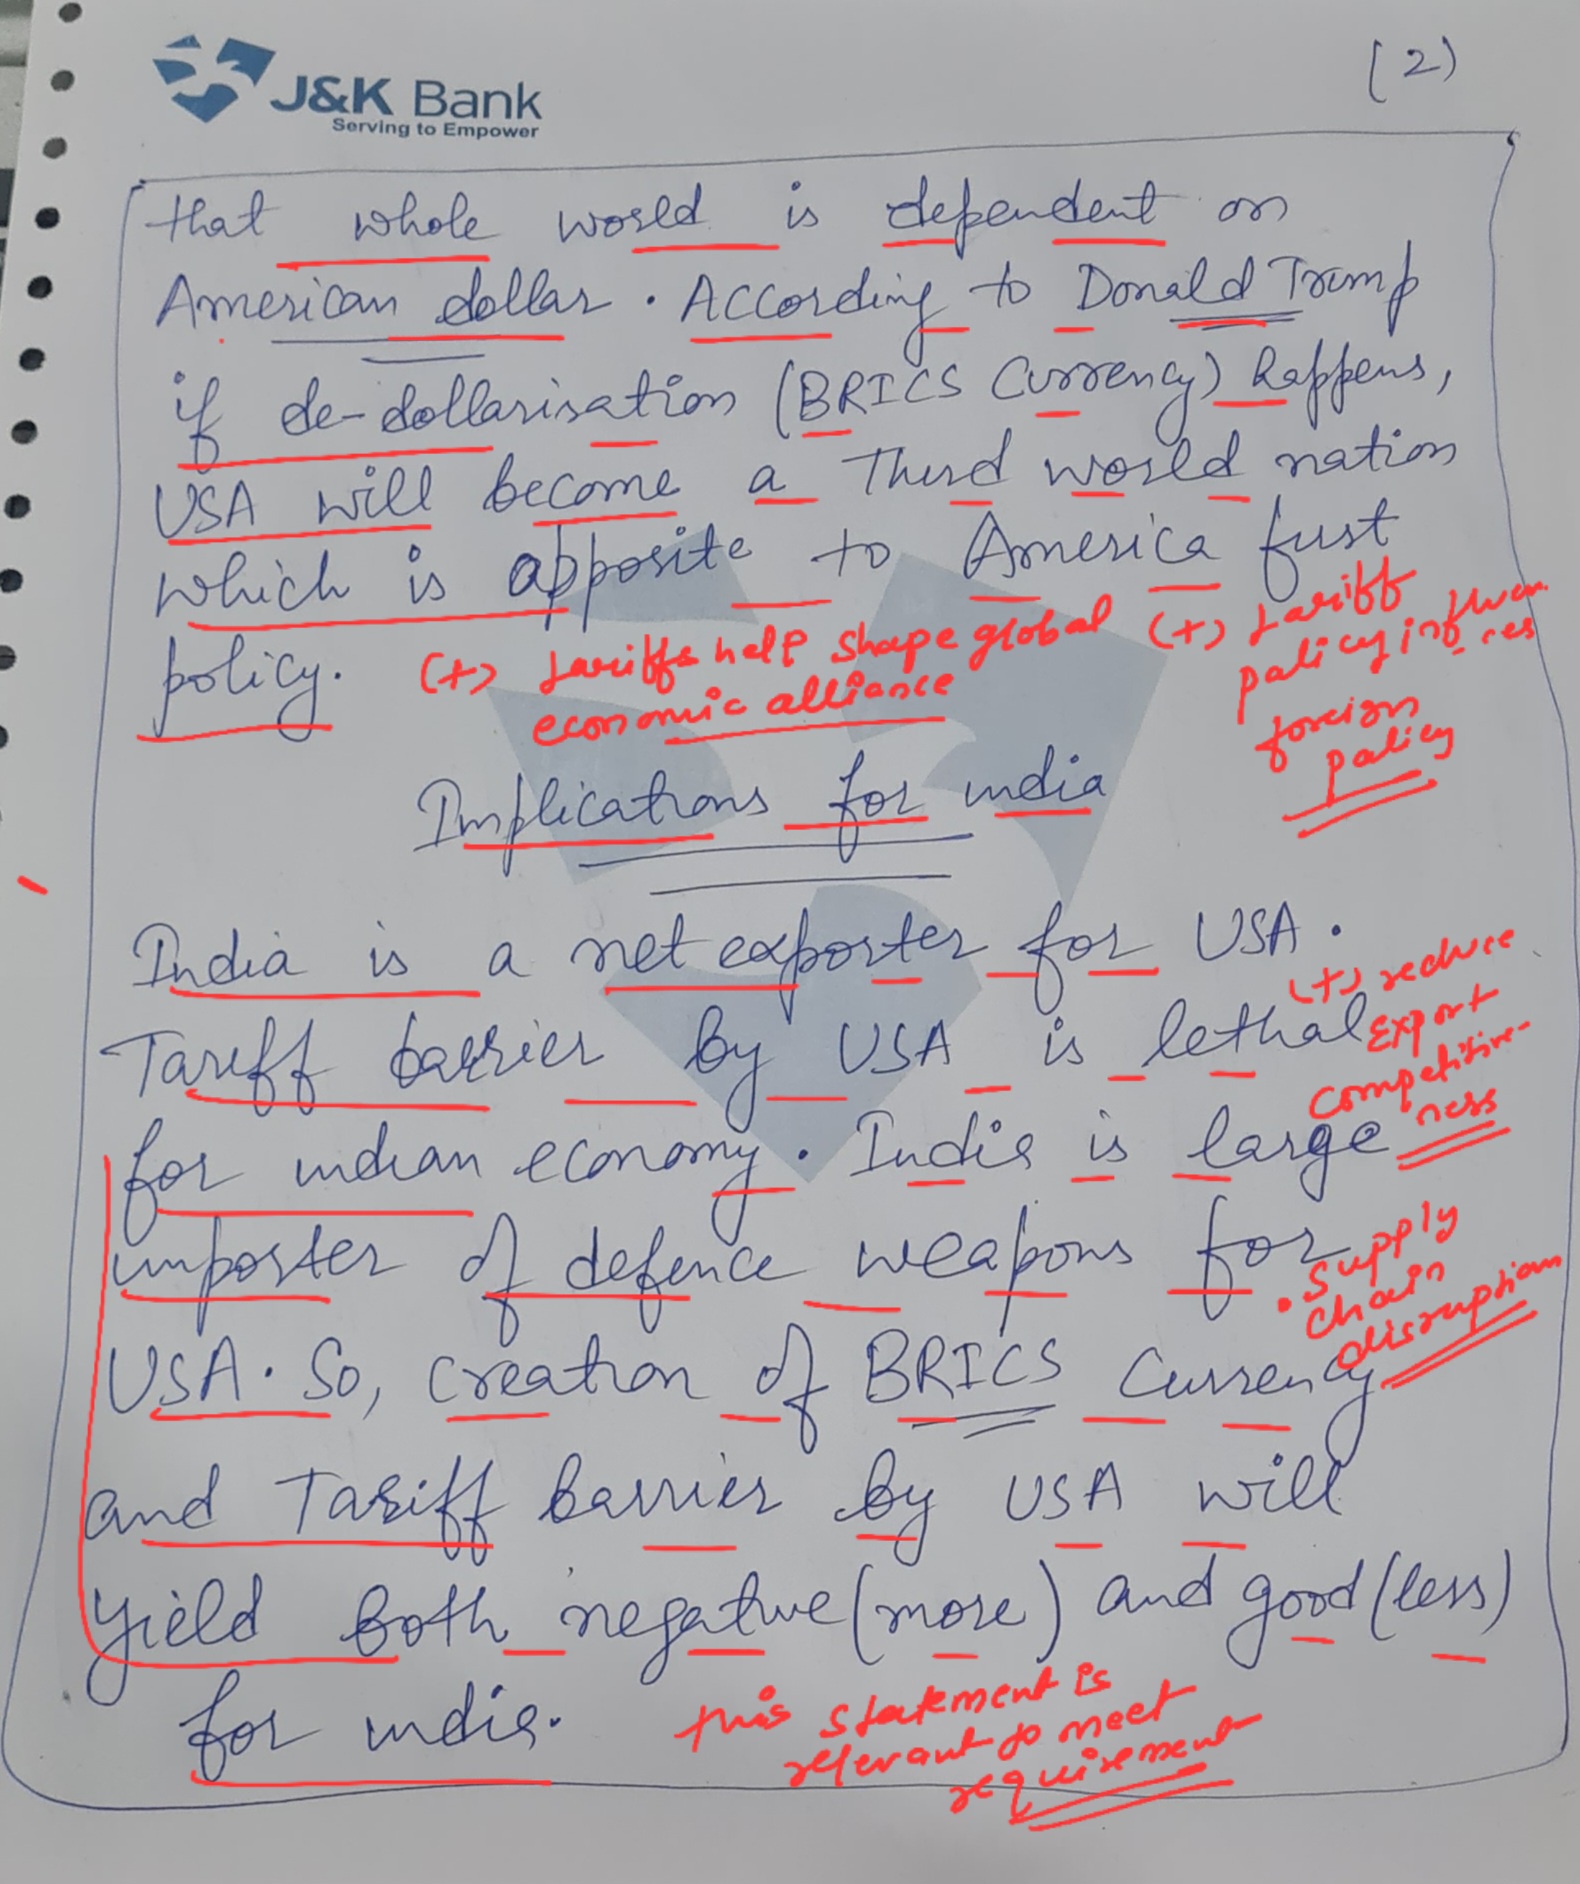 J&K Bank
Serving to Empower
(2)
that whole world is dependent on
American dollar. According to Donald Trump
if de-dollarisation (BRICS Currency) happens,
USA will become a Third world nation
which is opposite to America first
policy.
(+) tariffs help shape global
economic alliance
(+) tariff
policy influen
ces
foreign
policy
Implications for india
India is a net exporter for USA.
(+) reduce
Export
competitive-
ness
Tariff barrier by USA is lethal
for indian economy. India is large
importer of defence weapons for
. supply
chain
disruptions
USA. So, creation of BRICS Currency
and Tariff barrier by USA will
yield both negative (more) and good (less)
for india.
this statement is
relevant to meet
requirement